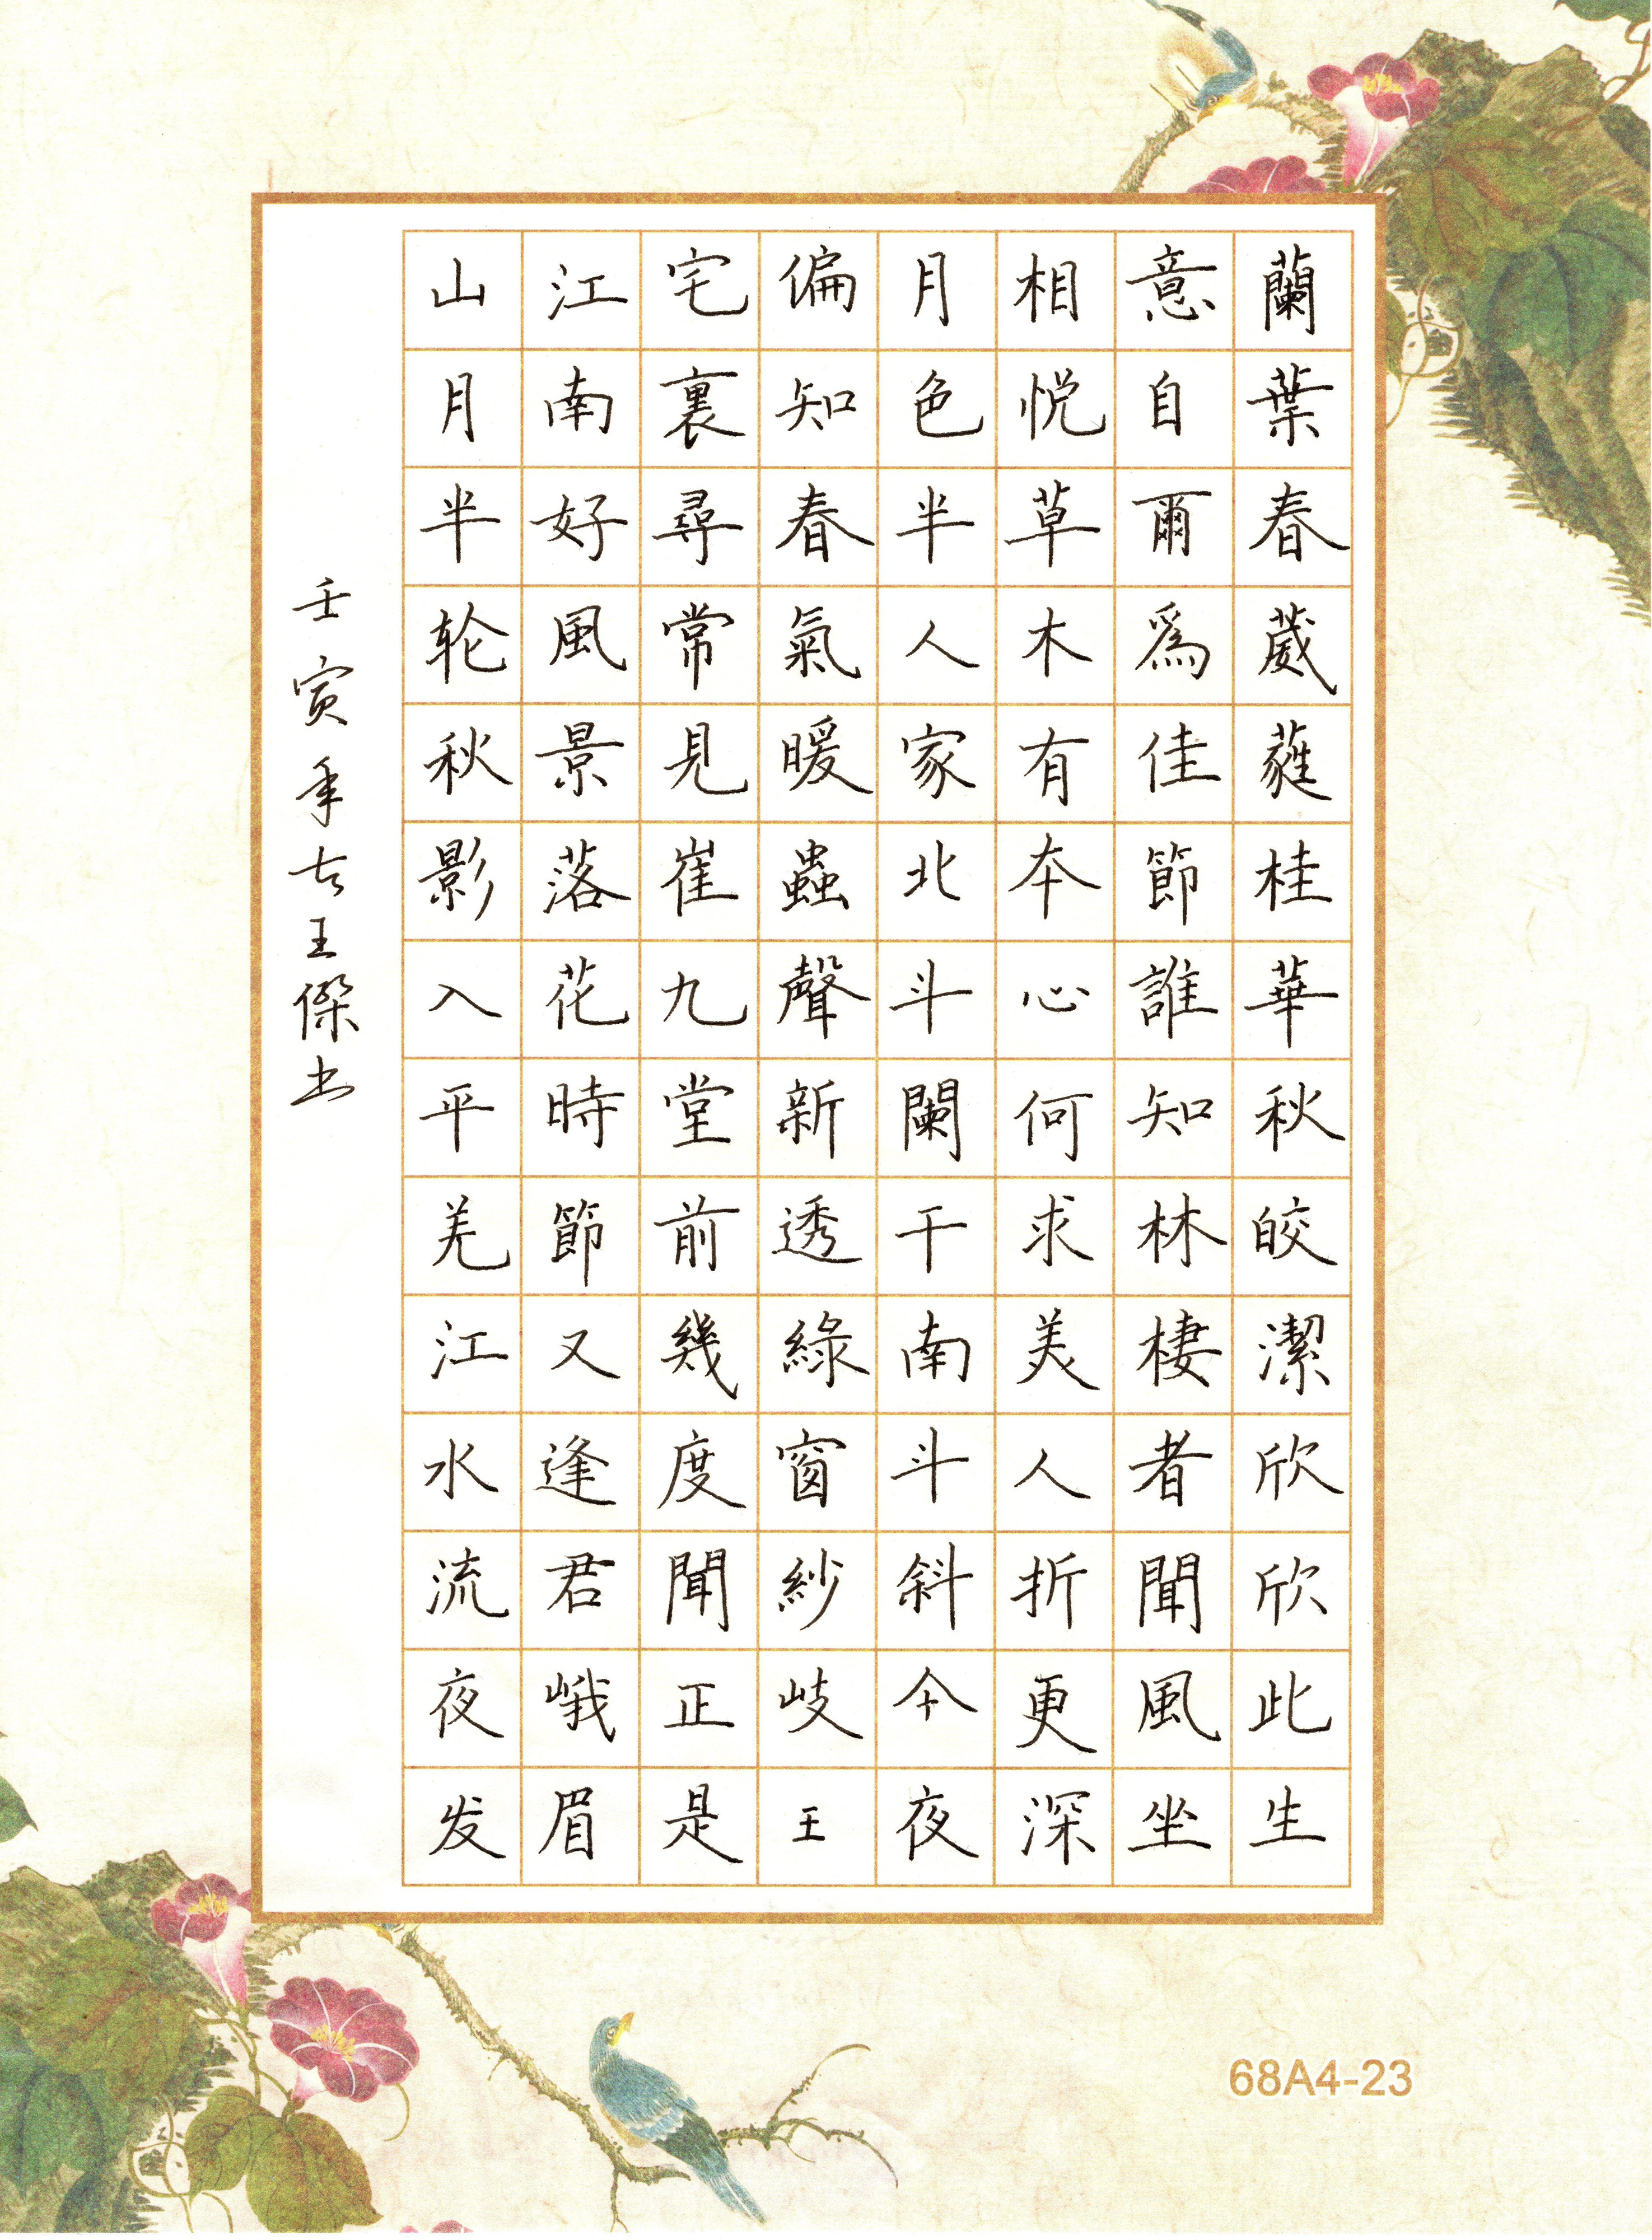 蘭葉春葳蕤桂華秋皎潔欣欣此生
意自爾爲佳節誰知林棲者聞風坐
相悦草木有本心何求美人折更深
月色半人家北斗闌干南斗斜今夜
偏知春氣暖蟲聲新透綠窗紗岐王
宅裏尋常見崔九堂前幾度聞正是
江南好風景落花時節又逢君峨眉
山月半轮秋影入平羌江水流夜发
壬寅年七王傑书
68A4-23